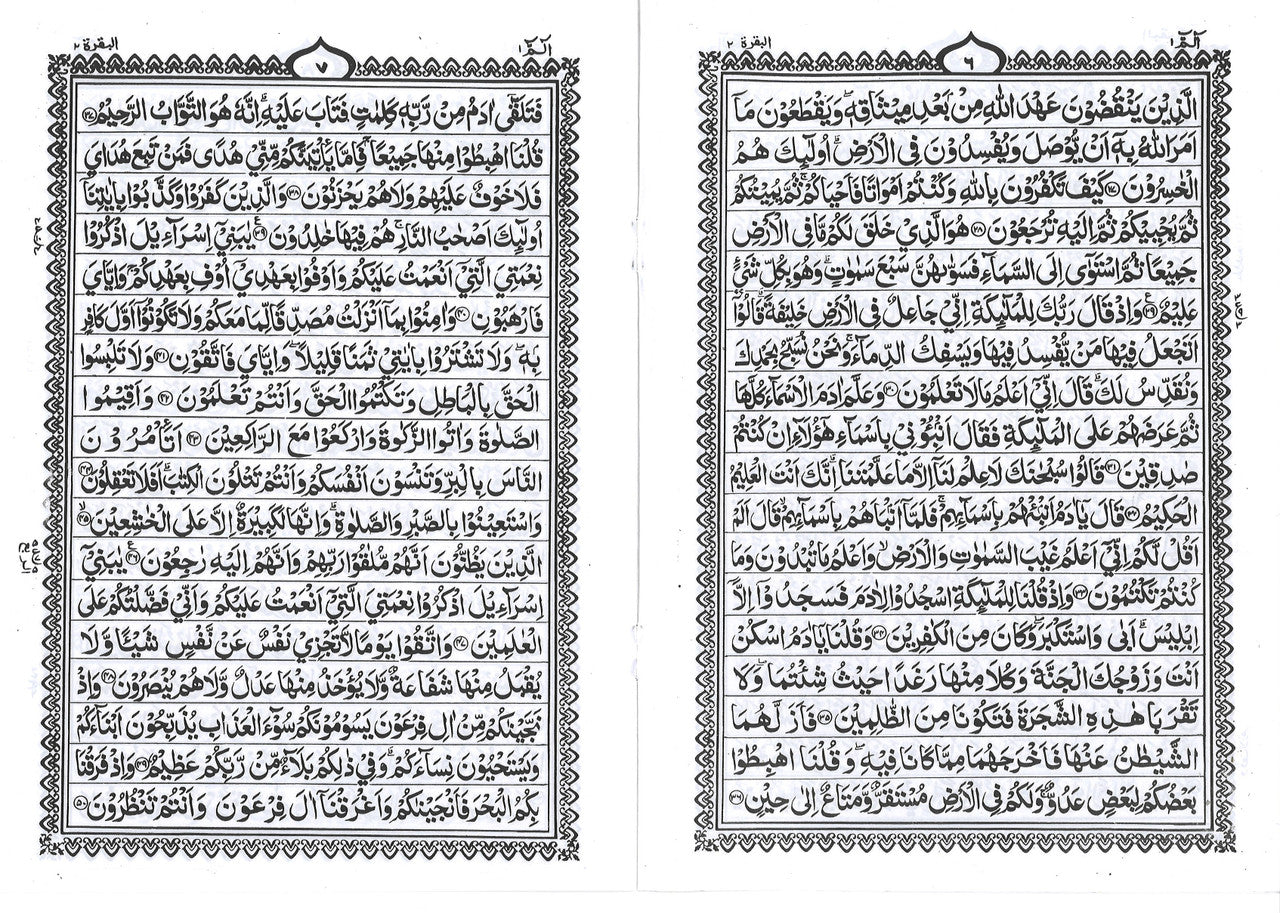 البقرة ٢
٦
الٓمّٓ ١
الَّذِيْنَ يَنْقُضُوْنَ عَهْدَ اللّٰهِ مِنْۢ بَعْدِ مِيْثَاقِهٖ وَيَقْطَعُوْنَ مَآ
اَمَرَ اللّٰهُ بِهٖٓ اَنْ يُّوْصَلَ وَيُفْسِدُوْنَ فِى الْاَرْضِ ؕ اُولٰٓئِكَ هُمُ
الْخٰسِرُوْنَ ﴿۲۷﴾ كَيْفَ تَكْفُرُوْنَ بِاللّٰهِ وَكُنْتُمْ اَمْوَاتًا فَاَحْيَاكُمْ ۚ ثُمَّ يُمِيْتُكُمْ
ثُمَّ يُحْيِيْكُمْ ثُمَّ اِلَيْهِ تُرْجَعُوْنَ ﴿۲۸﴾ هُوَ الَّذِيْ خَلَقَ لَكُمْ مَّا فِى الْاَرْضِ
جَمِيْعًا ثُمَّ اسْتَوٰٓى اِلَى السَّمَآءِ فَسَوّٰىهُنَّ سَبْعَ سَمٰوٰتٍ ؕ وَهُوَ بِكُلِّ شَيْءٍ
عَلِيْمٌ ﴿۲۹﴾ وَاِذْ قَالَ رَبُّكَ لِلْمَلٰٓئِكَةِ اِنِّيْ جَاعِلٌ فِى الْاَرْضِ خَلِيْفَةً ؕ قَالُوْٓا
اَتَجْعَلُ فِيْهَا مَنْ يُّفْسِدُ فِيْهَا وَيَسْفِكُ الدِّمَآءَ ۚ وَنَحْنُ نُسَبِّحُ بِحَمْدِكَ
وَنُقَدِّسُ لَكَ ؕ قَالَ اِنِّيْٓ اَعْلَمُ مَا لَا تَعْلَمُوْنَ ﴿۳۰﴾ وَعَلَّمَ اٰدَمَ الْاَسْمَآءَ كُلَّهَا
ثُمَّ عَرَضَهُمْ عَلَى الْمَلٰٓئِكَةِ فَقَالَ اَنْۢبِئُوْنِيْ بِاَسْمَآءِ هٰٓؤُلَآءِ اِنْ كُنْتُمْ
صٰدِقِيْنَ ﴿۳۱﴾ قَالُوْا سُبْحٰنَكَ لَا عِلْمَ لَنَآ اِلَّا مَا عَلَّمْتَنَا ؕ اِنَّكَ اَنْتَ الْعَلِيْمُ
الْحَكِيْمُ ﴿۳۲﴾ قَالَ يٰٓاٰدَمُ اَنْۢبِئْهُمْ بِاَسْمَآئِهِمْ ۚ فَلَمَّآ اَنْۢبَاَهُمْ بِاَسْمَآئِهِمْ ۙ قَالَ اَلَمْ
اَقُلْ لَّكُمْ اِنِّيْٓ اَعْلَمُ غَيْبَ السَّمٰوٰتِ وَالْاَرْضِ ۙ وَاَعْلَمُ مَا تُبْدُوْنَ وَمَا
كُنْتُمْ تَكْتُمُوْنَ ﴿۳۳﴾ وَاِذْ قُلْنَا لِلْمَلٰٓئِكَةِ اسْجُدُوْا لِاٰدَمَ فَسَجَدُوْٓا اِلَّآ
اِبْلِيْسَ ؕ اَبٰى وَاسْتَكْبَرَ ۗ وَكَانَ مِنَ الْكٰفِرِيْنَ ﴿۳۴﴾ وَقُلْنَا يٰٓاٰدَمُ اسْكُنْ
اَنْتَ وَزَوْجُكَ الْجَنَّةَ وَكُلَا مِنْهَا رَغَدًا حَيْثُ شِئْتُمَا ۪ وَلَا
تَقْرَبَا هٰذِهِ الشَّجَرَةَ فَتَكُوْنَا مِنَ الظّٰلِمِيْنَ ﴿۳۵﴾ فَاَزَلَّهُمَا
الشَّيْطٰنُ عَنْهَا فَاَخْرَجَهُمَا مِمَّا كَانَا فِيْهِ ۪ وَقُلْنَا اهْبِطُوْا
بَعْضُكُمْ لِبَعْضٍ عَدُوٌّ ۚ وَلَكُمْ فِى الْاَرْضِ مُسْتَقَرٌّ وَّمَتَاعٌ اِلٰى حِيْنٍ ﴿۳۶﴾
البقرة ٢
٧
الٓمّٓ ١
فَتَلَقّٰٓى اٰدَمُ مِنْ رَّبِّهٖ كَلِمٰتٍ فَتَابَ عَلَيْهِ ؕ اِنَّهٗ هُوَ التَّوَّابُ الرَّحِيْمُ ﴿۳۷﴾
قُلْنَا اهْبِطُوْا مِنْهَا جَمِيْعًا ۚ فَاِمَّا يَاْتِيَنَّكُمْ مِّنِّيْ هُدًى فَمَنْ تَبِعَ هُدَايَ
فَلَا خَوْفٌ عَلَيْهِمْ وَلَا هُمْ يَحْزَنُوْنَ ﴿۳۸﴾ وَالَّذِيْنَ كَفَرُوْا وَكَذَّبُوْا بِاٰيٰتِنَآ
اُولٰٓئِكَ اَصْحٰبُ النَّارِ ۚ هُمْ فِيْهَا خٰلِدُوْنَ ﴿۳۹﴾ يٰبَنِيْٓ اِسْرَآءِيْلَ اذْكُرُوْا
نِعْمَتِيَ الَّتِيْٓ اَنْعَمْتُ عَلَيْكُمْ وَاَوْفُوْا بِعَهْدِيْٓ اُوْفِ بِعَهْدِكُمْ ۚ وَاِيَّايَ
فَارْهَبُوْنِ ﴿۴۰﴾ وَاٰمِنُوْا بِمَآ اَنْزَلْتُ مُصَدِّقًا لِّمَا مَعَكُمْ وَلَا تَكُوْنُوْٓا اَوَّلَ كَافِرٍۢ
بِهٖ ۪ وَلَا تَشْتَرُوْا بِاٰيٰتِيْ ثَمَنًا قَلِيْلًا ۫ وَاِيَّايَ فَاتَّقُوْنِ ﴿۴۱﴾ وَلَا تَلْبِسُوا
الْحَقَّ بِالْبَاطِلِ وَتَكْتُمُوا الْحَقَّ وَاَنْتُمْ تَعْلَمُوْنَ ﴿۴۲﴾ وَاَقِيْمُوا
الصَّلٰوةَ وَاٰتُوا الزَّكٰوةَ وَارْكَعُوْا مَعَ الرَّاكِعِيْنَ ﴿۴۳﴾ اَتَاْمُرُوْنَ
النَّاسَ بِالْبِرِّ وَتَنْسَوْنَ اَنْفُسَكُمْ وَاَنْتُمْ تَتْلُوْنَ الْكِتٰبَ ؕ اَفَلَا تَعْقِلُوْنَ ﴿۴۴﴾
وَاسْتَعِيْنُوْا بِالصَّبْرِ وَالصَّلٰوةِ ؕ وَاِنَّهَا لَكَبِيْرَةٌ اِلَّا عَلَى الْخٰشِعِيْنَ ﴿۴۵﴾
الَّذِيْنَ يَظُنُّوْنَ اَنَّهُمْ مُّلٰقُوْا رَبِّهِمْ وَاَنَّهُمْ اِلَيْهِ رٰجِعُوْنَ ﴿۴۶﴾ يٰبَنِيْٓ
اِسْرَآءِيْلَ اذْكُرُوْا نِعْمَتِيَ الَّتِيْٓ اَنْعَمْتُ عَلَيْكُمْ وَاَنِّيْ فَضَّلْتُكُمْ عَلَى
الْعٰلَمِيْنَ ﴿۴۷﴾ وَاتَّقُوْا يَوْمًا لَّا تَجْزِيْ نَفْسٌ عَنْ نَّفْسٍ شَيْـًٔا وَّلَا
يُقْبَلُ مِنْهَا شَفَاعَةٌ وَّلَا يُؤْخَذُ مِنْهَا عَدْلٌ وَّلَا هُمْ يُنْصَرُوْنَ ﴿۴۸﴾ وَاِذْ
نَجَّيْنٰكُمْ مِّنْ اٰلِ فِرْعَوْنَ يَسُوْمُوْنَكُمْ سُوْٓءَ الْعَذَابِ يُذَبِّحُوْنَ اَبْنَآءَكُمْ
وَيَسْتَحْيُوْنَ نِسَآءَكُمْ ؕ وَفِيْ ذٰلِكُمْ بَلَآءٌ مِّنْ رَّبِّكُمْ عَظِيْمٌ ﴿۴۹﴾ وَاِذْ فَرَقْنَا
بِكُمُ الْبَحْرَ فَاَنْجَيْنٰكُمْ وَاَغْرَقْنَآ اٰلَ فِرْعَوْنَ وَاَنْتُمْ تَنْظُرُوْنَ ﴿۵۰﴾